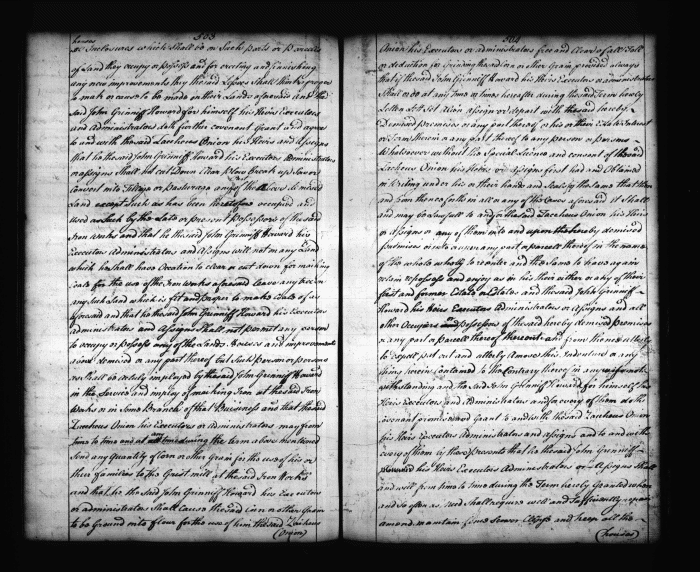 503
houses
or Inclosures which shall be on Such parts or parcells
of Land they occupy or possess and for erecting and finishing
any new improvements they the said Lessees shall think proper
to mak or cause to be made on their sundry and the
said John Grinniff Howard for himself his Heirs Executors
and Administrators doth further covenant Grant and agree
to and with the said Zacheus Onion his Heirs and assigns
that he the said John Grinniff Howard his Executors Administrators
or assigns Shall not Cut Down Clear Plow break up Sow or
Convert into Tillage or Pasturage any of the above demised
Land except such as has been heretofore occupied and
used as Such by the late or present possessors of the said
Iron works and that he the said John Grinniff Howard his
Executors Administrators and assigns will not on any Land
which he shall have Occation to clear or cut down for making
Coals for the use of the Iron works aforesaid Leave any tree on
any such Land which is fit and proper to make Coals of as
aforesaid and that he the said John Grinniff Howard his Executors
Administrators and Assigns Shall not permit any person
to occupy or possess any of the Lands Houses and improvements
above demised or any part thereof but Such person or persons
as shall be actually employed by the said John Grinniff Howard
in the Service and imploy of making Iron at the said Iron
Works or in Some Branch of that Business and that the said
Zacheus Onion his Executors or administrators may from
time to time and at all times during the term above mentioned
Send any Quantity of Corn or other Grain for the use of his or
their families to the Grist mill at the said Iron Works
and that he the said John Grinniff Howard his Executors
or administrators Shall Cause the said Corn or other Grain
to be Ground into flour for the use of him the said Zacheus
(Onion)
504
Onion his Executors or administrators free and Clear of all Toll
or deduction for Grinding the said Corn or other Grain provided always
that if the said John Grinniff Howard his Heirs Executors or administrators
Shall or do at any time or times hereafter during the said Term hereby
Letten Set Let Alien assign or depart with the said hereby
Demised premises or any part thereof or his or their Estate Interest
or Term therein or any part thereof to any person or persons
Whatsoever without the Special Licence and consent of the said
Zacheus Onion his Heirs or assigns first had and Obtained
in Writing under his or their hands and Seals for the same that then
and from thence forth in all or any of the Cases aforesaid it Shall
and may be Lawfull to and for the said Zacheus Onion his Heirs
or assigns or any of them into and upon the hereby demised
premises or into or on any part or parcell thereof in the name
of the whole wholy to reenter and the Same to have again
retain repossess and enjoy as in his their either or any of their
first and former Estate or Estates and the said John Grinniff
Howard his Heirs Executors Administrators or Assigns and all
other Occupiers and possessors of the said hereby demised premises
or any part or parcell thereof thereout and from thence utterly
to Expell put out and utterly Amove this Indenture or any
thing herein contained to the Contrary thereof in any wise not
withstanding and the said John Grinniff Howard for himself his
Heirs Executors and Administrators and for every of them do the
Covenant promise and Grant to and with the said Zacheus Onion
his Heirs Executors Administrators and assigns and to and with
every of them by these presents that he the said John Grinniff
Howard his Heirs Executors Administrators or Assigns Shall
and will from time to time during the Term hereby Granted when
and so often as need Shall require well and Sufficiently repair
amend maintain fence Scower Clense and keep all the
(houses)